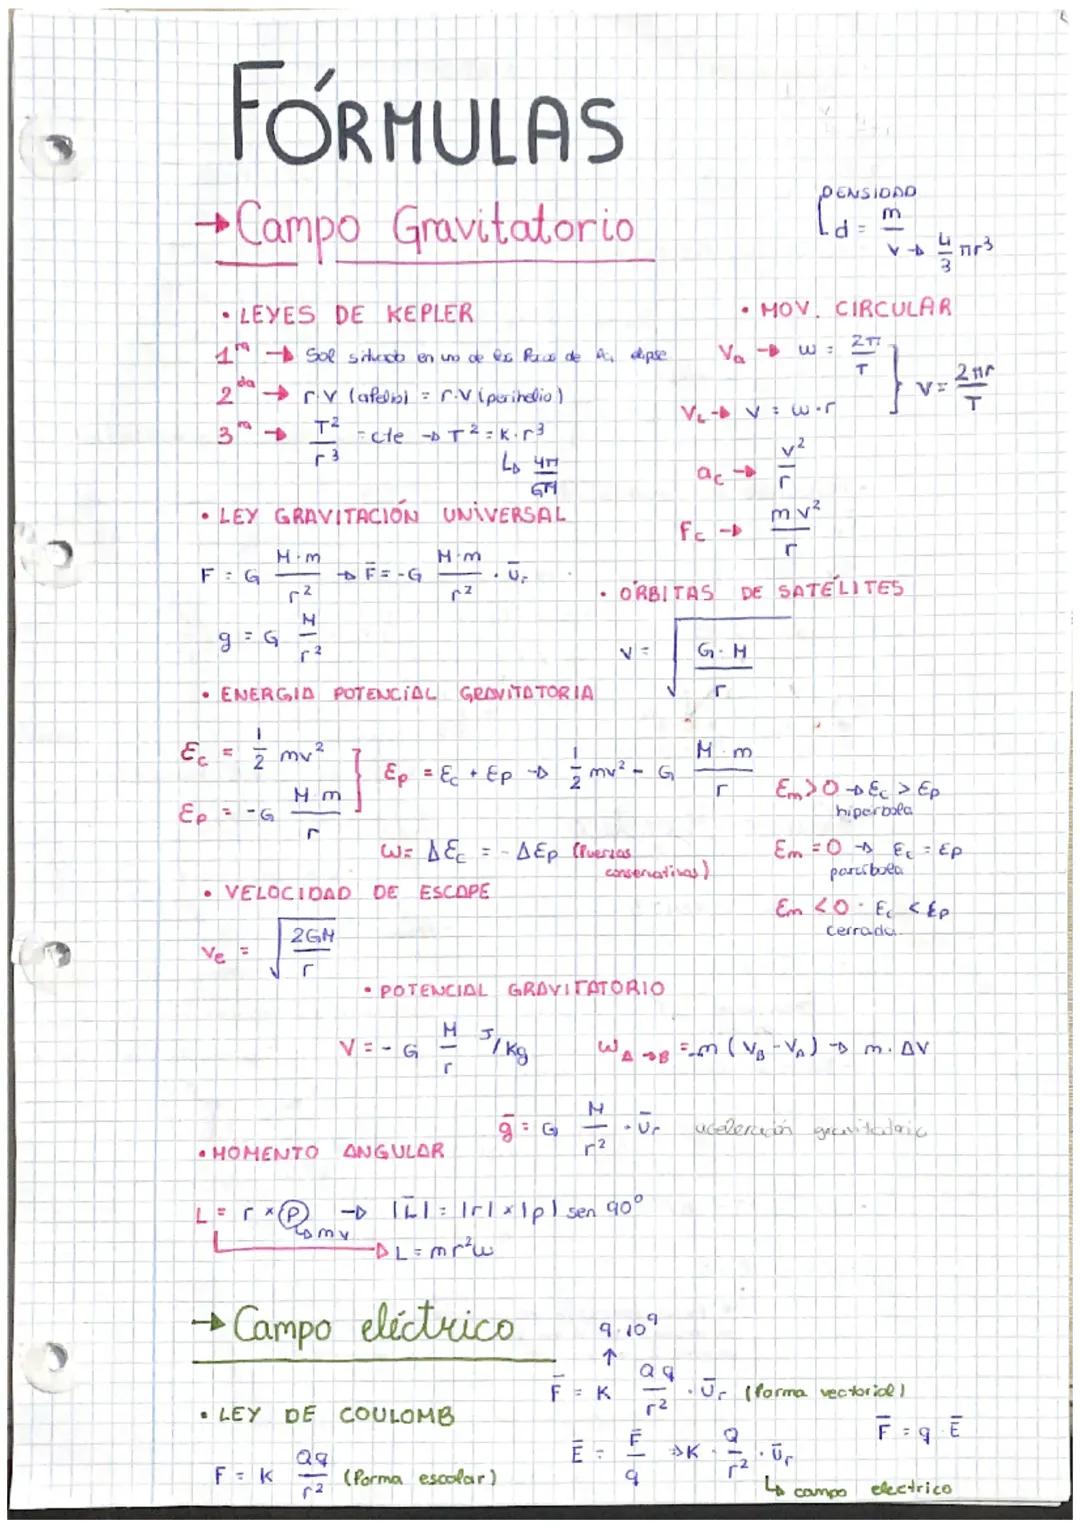 FÓRMULAS
→ Campo Gravitatorio
DENSIDAD
d = m / v → 4/3 πr³
• LEYES DE KEPLER
1ra → Sol situado en uno de los focos de la elipse
2da → r·v (afelio) = r·v (perihelio)
3ra → T²/r³ = cte → T² = K·r³
↳ 4π/GM
• MOV. CIRCULAR
Va → w = 2π/T
VL → v = w·r
} v = 2πr/T
ac → v²/r
Fc → mv²/r
• LEY GRAVITACIÓN UNIVERSAL
F = G M·m/r² → F̄ = -G M·m/r² · Ūr
g = G M/r²
• ÓRBITAS DE SATÉLITES
v = √(G·M/r)
• ENERGIA POTENCIAL GRAVITATORIA
Ec = 1/2 mv²
Ep = -G M·m/r
} Ep = Ec + Ep → 1/2 mv² - G M·m/r
W = ΔEc = -ΔEp (fuerzas conservativas)
Em > 0 → Ec > Ep
hipérbola
Em = 0 → Ec = Ep
parábola
Em < 0 · Ec < Ep
cerrada
• VELOCIDAD DE ESCAPE
Ve = √(2GM/r)
• POTENCIAL GRAVITATORIO
V = -G M/r J/Kg
WA→B = -m (VB - VA) → m·ΔV
ḡ = G M/r² · Ūr aceleración gravitatoria
• MOMENTO ANGULAR
L = r × p → |L̄| = |r| × |p| sen 90°
↳ mv
→ L = mr²w
→ Campo eléctrico
• LEY DE COULOMB
F = K Qq/r² (forma escalar)
9·10⁹
↑
F̄ = K Qq/r² · Ūr (forma vectorial)
Ē = F̄/q ⇒ K · Q/r² · Ūr
↳ campo electrico
F̄ = q·Ē